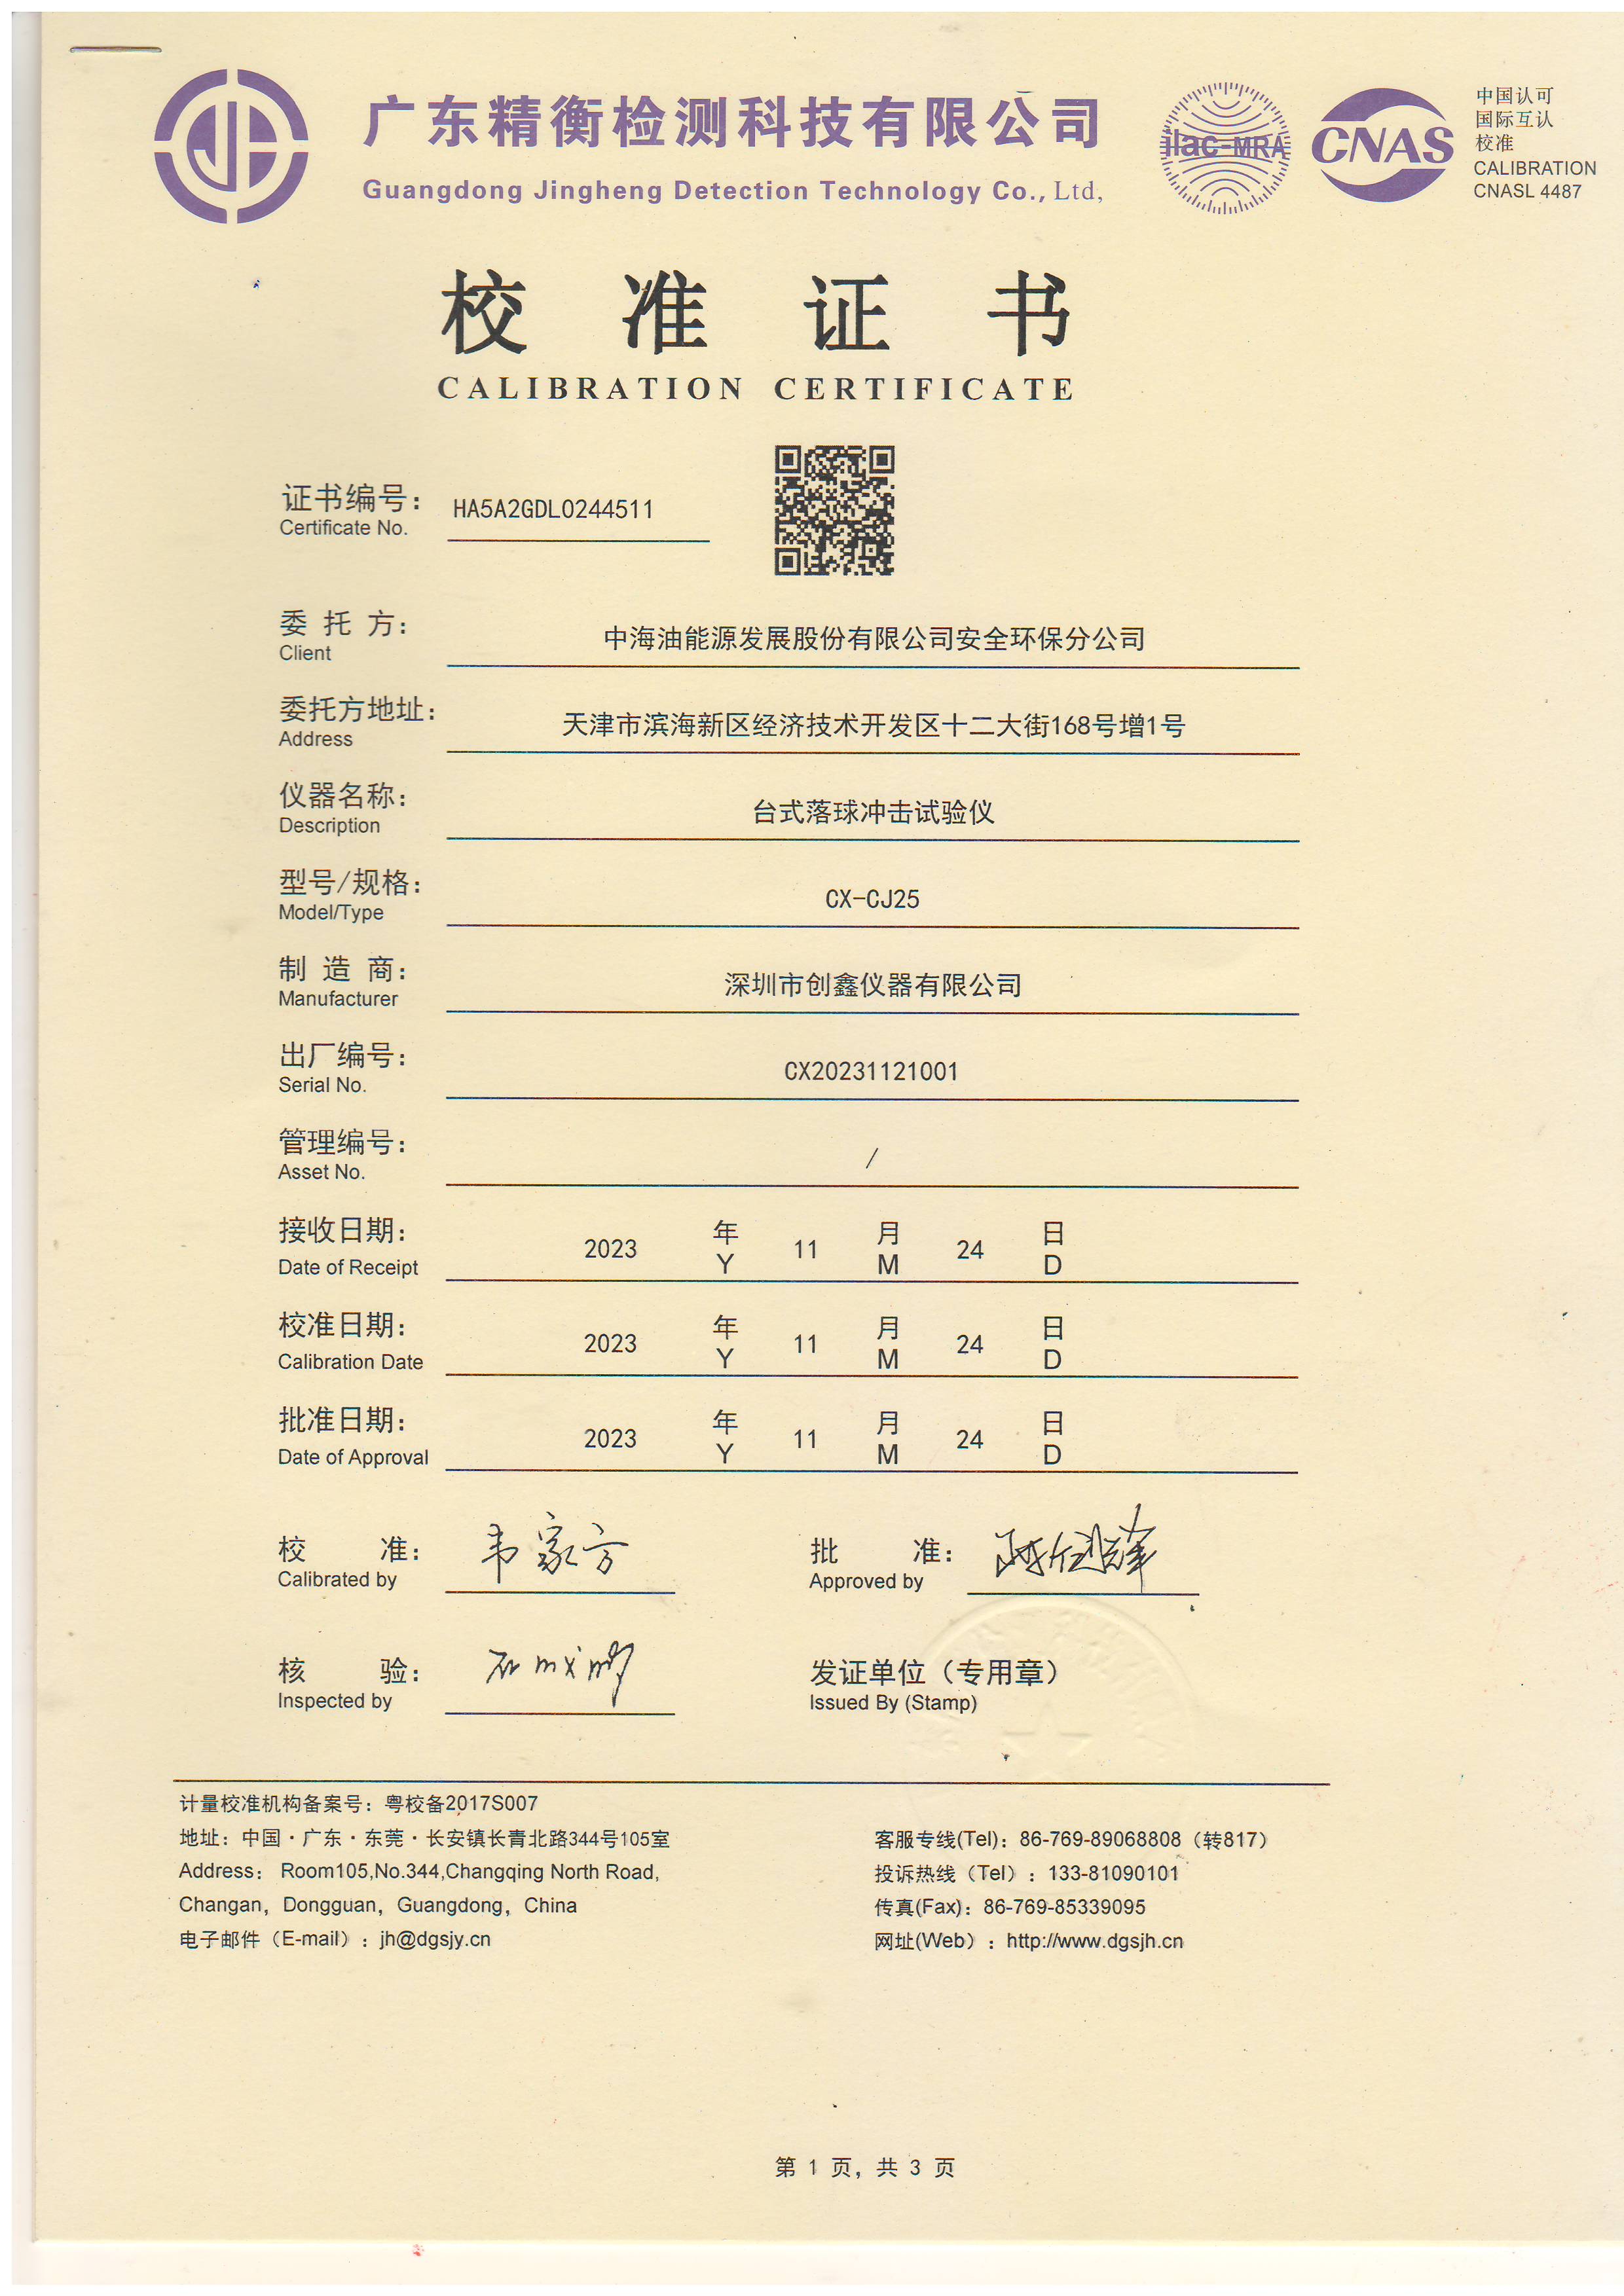 广东精衡检测科技有限公司
Guangdong Jingheng Detection Technology Co., Ltd,
ilac-MRA
CNAS
中国认可
国际互认
校准
CALIBRATION
CNASL 4487
校准证书
CALIBRATION CERTIFICATE
证书编号: HA5A2GDL0244511
Certificate No.
委托方: 中海油能源发展股份有限公司安全环保分公司
Client
委托方地址: 天津市滨海新区经济技术开发区十二大街168号增1号
Address
仪器名称: 台式落球冲击试验仪
Description
型号/规格: CX-CJ25
Model/Type
制造商: 深圳市创鑫仪器有限公司
Manufacturer
出厂编号: CX20231121001
Serial No.
管理编号: /
Asset No.
接收日期: 2023 年 11 月 24 日
Date of Receipt Y M D
校准日期: 2023 年 11 月 24 日
Calibration Date Y M D
批准日期: 2023 年 11 月 24 日
Date of Approval Y M D
校准: 韦家方 批准:
Calibrated by Approved by
核验: 发证单位（专用章）
Inspected by Issued By (Stamp)
计量校准机构备案号: 粤校备2017S007
地址: 中国·广东·东莞·长安镇长青北路344号105室
Address: Room105,No.344,Changqing North Road,
Changan, Dongguan, Guangdong, China
电子邮件（E-mail）: jh@dgsjy.cn
客服专线(Tel): 86-769-89068808（转817）
投诉热线（Tel）: 133-81090101
传真(Fax): 86-769-85339095
网址(Web）: http://www.dgsjh.cn
第 1 页, 共 3 页